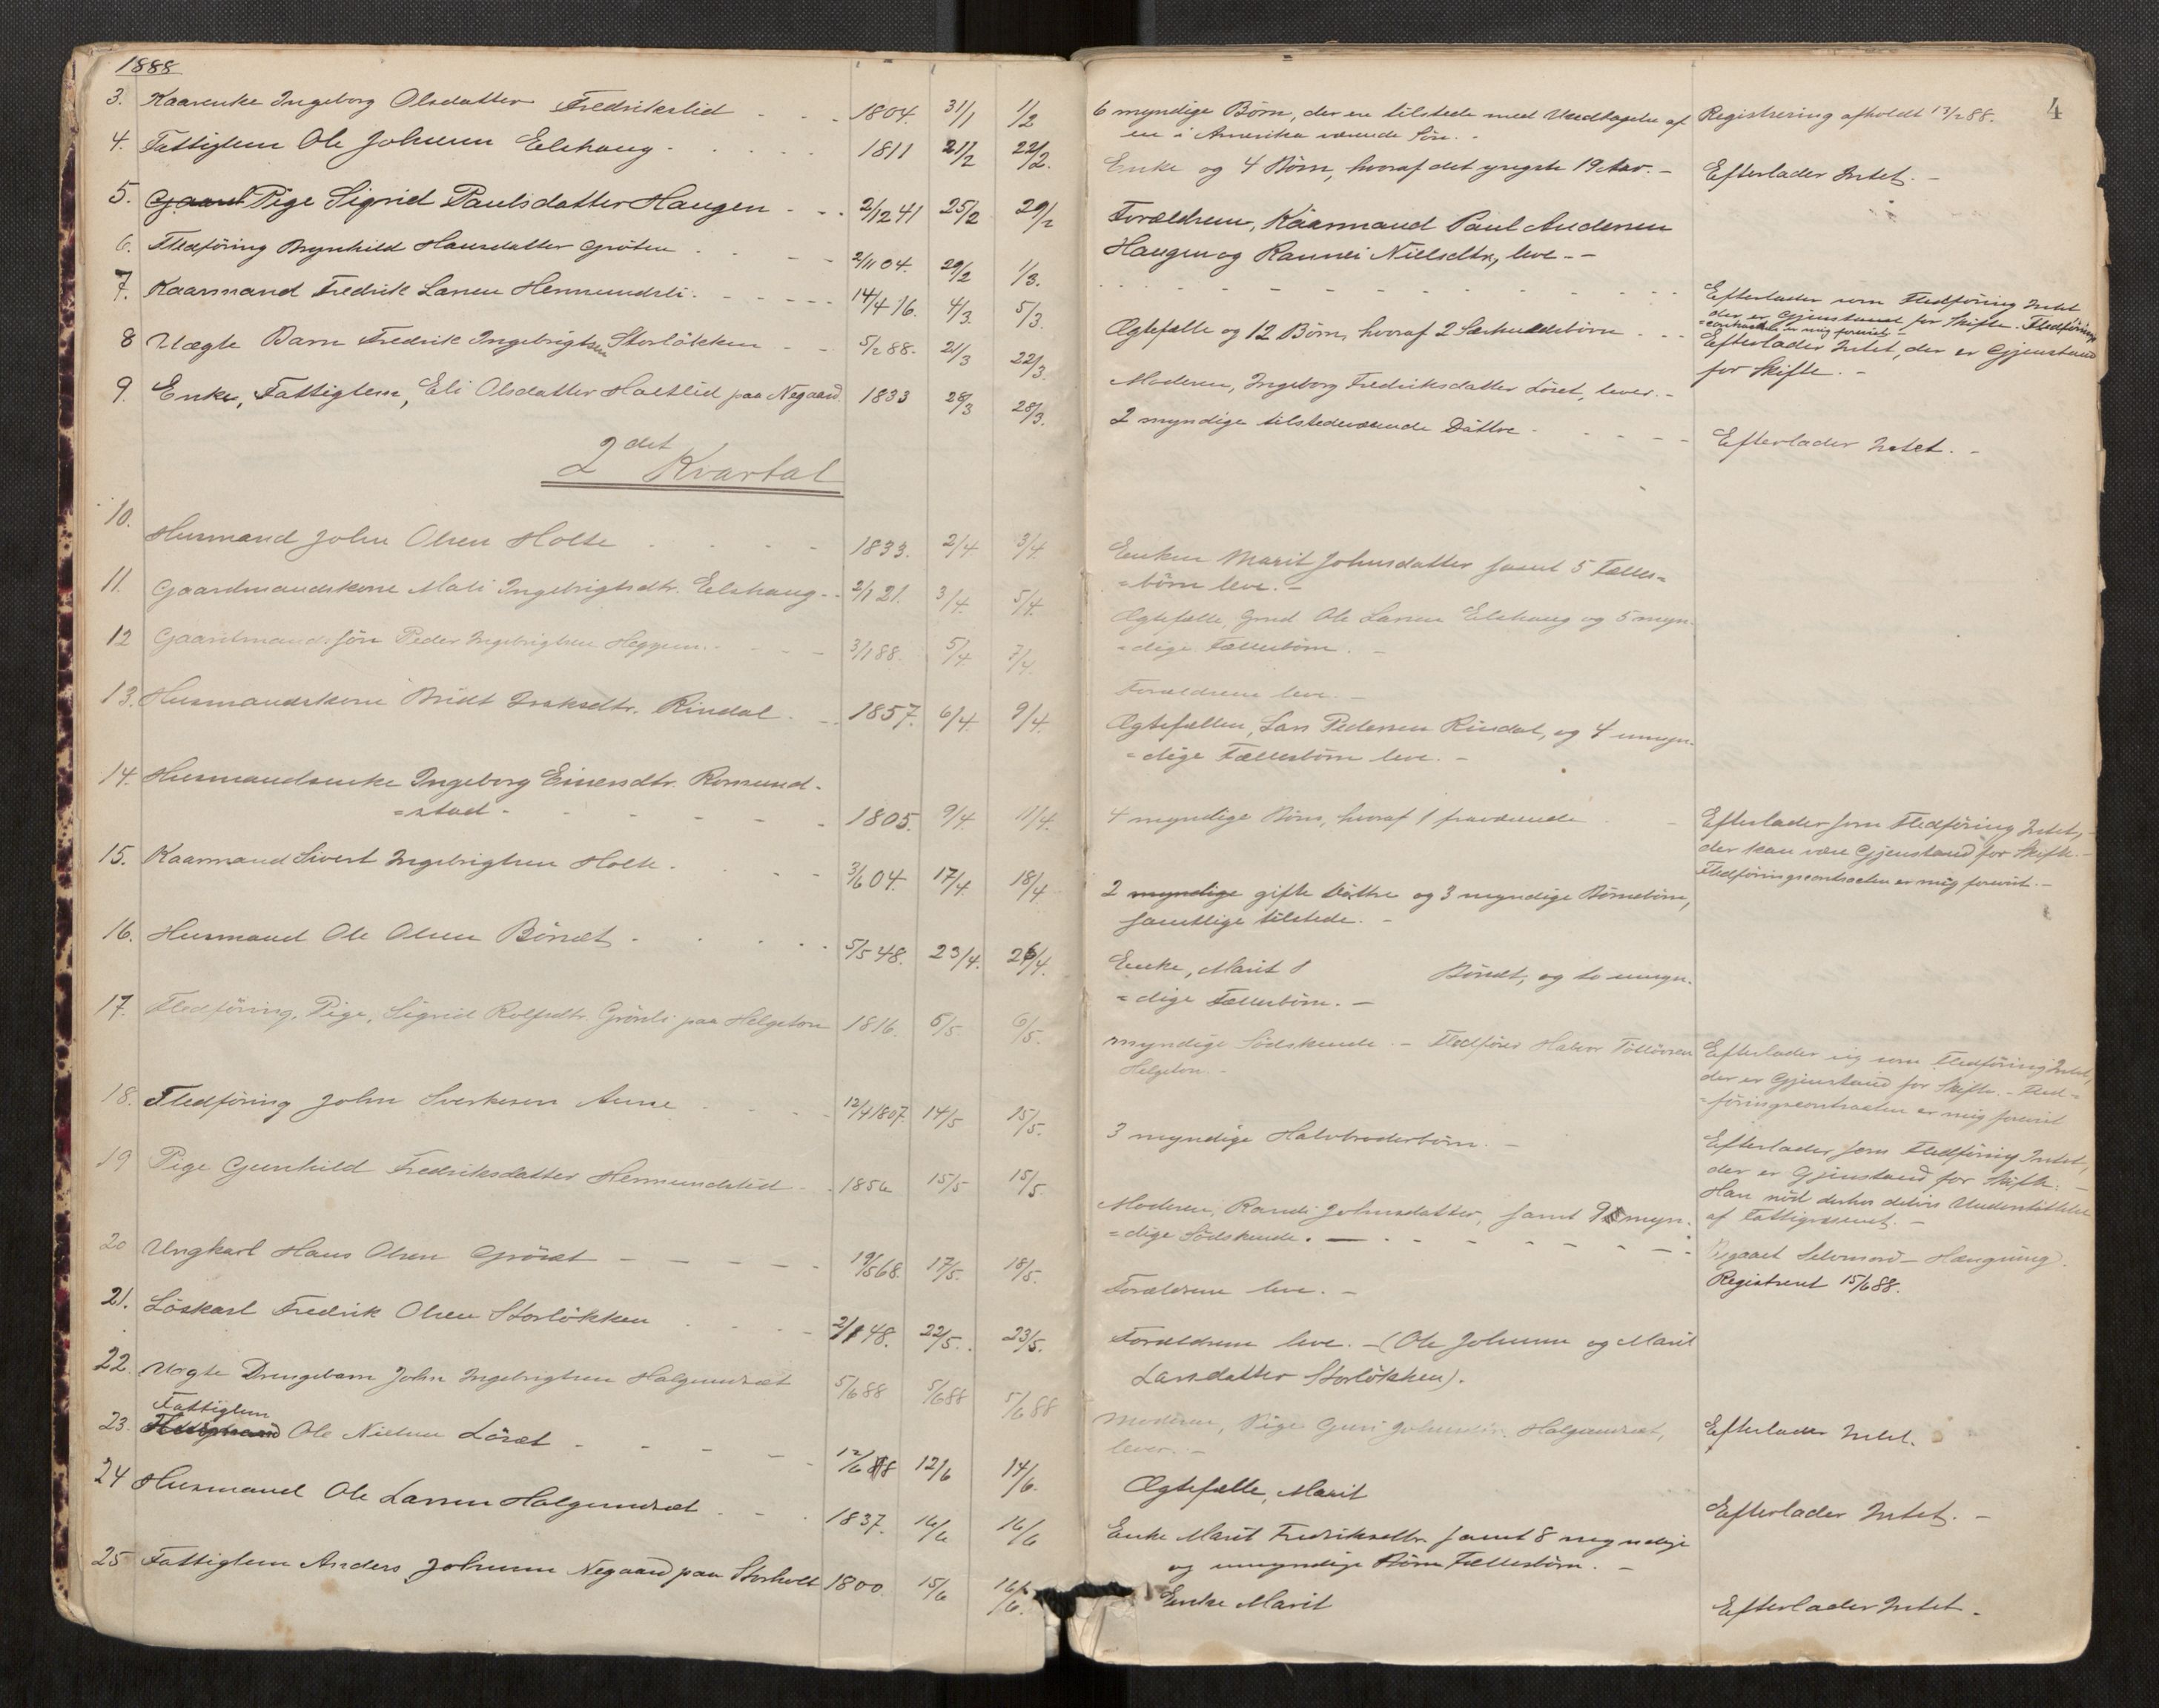 1888
3. Kaarenke Ingeborg Olsdatter Fredrikslid 1804. 31/1 1/2
4. Fattiglem Ole Johnsen Elshaug 1811 21/2 22/2.
5. Gaard Pige Sigrid Paulsdatter Haugen 2/12 41 25/2 29/2
6. Fledföring Brynhild Hansdatter Gröten 2/11 04. 29/2 1/3.
7. Kaarmand Fredrik Larsen Hermundsli. 14/4 16. 4/3. 5/3.
8 Uægte Barn Fredrik Ingebrigtsen Storlökken 5/2 88. 21/3 22/3.
9. Enke, Fattiglem, Eli Olsdatter Holtlid paa Negaard. 1833 28/3 28/3.
2det Kvartal
10. Husmand John Olsen Holte 1833. 2/4 3/4.
11. Gaardmandskone Mali Ingebrigtsdtr. Elshaug 2/1 21. 3/4. 5/4.
12 Gaardmands Sön Peder Ingebrigtsen Heggem. 3/1 88. 5/4. 7/4.
13. Husmandskone Bridt Isaksdtr. Rindal. 1857. 6/4. 9/4.
14. Husmandsenke Ingeborg Einersdtr. Romund-
=stad 1805. 9/4. 11/4.
15. Kaarmand Sivert Ingebrigtsen Holte. 3/6 04. 17/4. 18/4
16. Husmand Ole Olsen Böræt 5/5 48. 23/4. 26/4.
17. Fledföring, Pige, Sigrid Rolfsdtr. Grönli paa Helgeton 1816. 5/5 6/5.
18. Fledföring John Sverkesen Aune 12/4 1807. 14/5 15/5.
19 Pige Gunhild Fredriksdatter Hermundslid 1856 15/5 15/5.
20 Ungkarl Hans Olsen Gröset 19/5 68. 17/5. 18/5.
21. Löskarl Fredrik Olsen Storlökken 2/1 48. 22/5. 23/5.
22. Uægte Drengebarn John Ingebrigtsen Halgunset 5/6 88 5/6 88 5/6 88
Fattiglem
23. Ole Nielsen Löset 12/6 12/6 14/6.
24 Husmand Ole Larsen Halgunset 1837. 14/6 16/6
25 Fattiglem Anders Johnsen Negaard paa Storholt 1800. 15/6 16/6.
4
6 myndige Börn, der ere tilstede med Undtagelse af
en i Amerika værende Sön. Registrering afholdt 13/2 88.
Enke og 4 Börn, hvoraf det yngste 19 Aar. - Efterlader Intet. -
Forældrene, Kaarmand Paul Andersen
Haugen og Rannei Nielsdtr., leve. -
Efterlader som Fledföring Intet
der er Gjenstand for Skifte. Fledförings-
=contrakten er mig forevist -
Ægtefælle og 12 Börn, hvoraf 2 Særkuldsbörn Efterlader Intet, der er Gjenstand
for Skifte. -
Moderen, Ingeborg Fredriksdatter Löset, lever. -
2 myndige tilstedeværende Döttre Efterlader Intet. -
Enken Marit Johnsdatter samt 5 Fælles=
=börn leve. -
Ægtefælle, Gmd Ole Larsen Elshaug og 5 myn-
=dige Fællesbörn. -
Forældrene leve. -
Ægtefællen, Lars Pedersen Rindal, og 4 umyn-
=dige Fællesbörn leve. -
4 myndige Börn, hvoraf 1 fraværende Efterlader som Fledföring Intet,
der kan være Gjenstand for Skifte. -
Fledföringscontracten er mig forevist. -
2 myndige gifte Döttre og 3 myndige Börnebörn,
samtlige tilstede. -
Enke, Marit Böræt, og to umyn-
=dige Fællesbörn. -
myndige Södskende. - Fledförer Halvor Tollövsen
Helgeton. -
Efterlader sig som Fledföring Intet,
der er Gjenstand for Skifte. - Fled=
=föringscontracten er mig forevist
3 myndige Halvbroderbörn. -
Efterlader som Fledföring Intet,
der er Gjenstand for Skifte. -
Han nöd derhos delvis Understöttelse
af Fattigvæsenet. -
Moderen, Randi Johnsdatter, samt 9 myn-
=dige Södskende. -
Begaaet Selvmord - Hængning.
Registreret 15/6 88.
Forældrene leve. -
Forældrene leve. - (Ole Johnsen og Marit
Larsdatter Storlökken).
Moderen, Pige Guri Johnsdtr. Halgunset,
lever. - Efterlader Intet.
Ægtefælle, Marit Efterlader Intet. -
Enke Marit Fredriksdtr. samt 8 myndige
og umyndige Börn Fællesbörn. -
Enke Marit Efterlader Intet. -